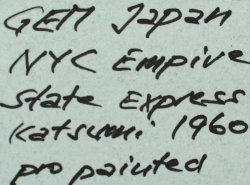 GEM Japan
NYC Empire
State Express
Katsumi 1960
pro painted